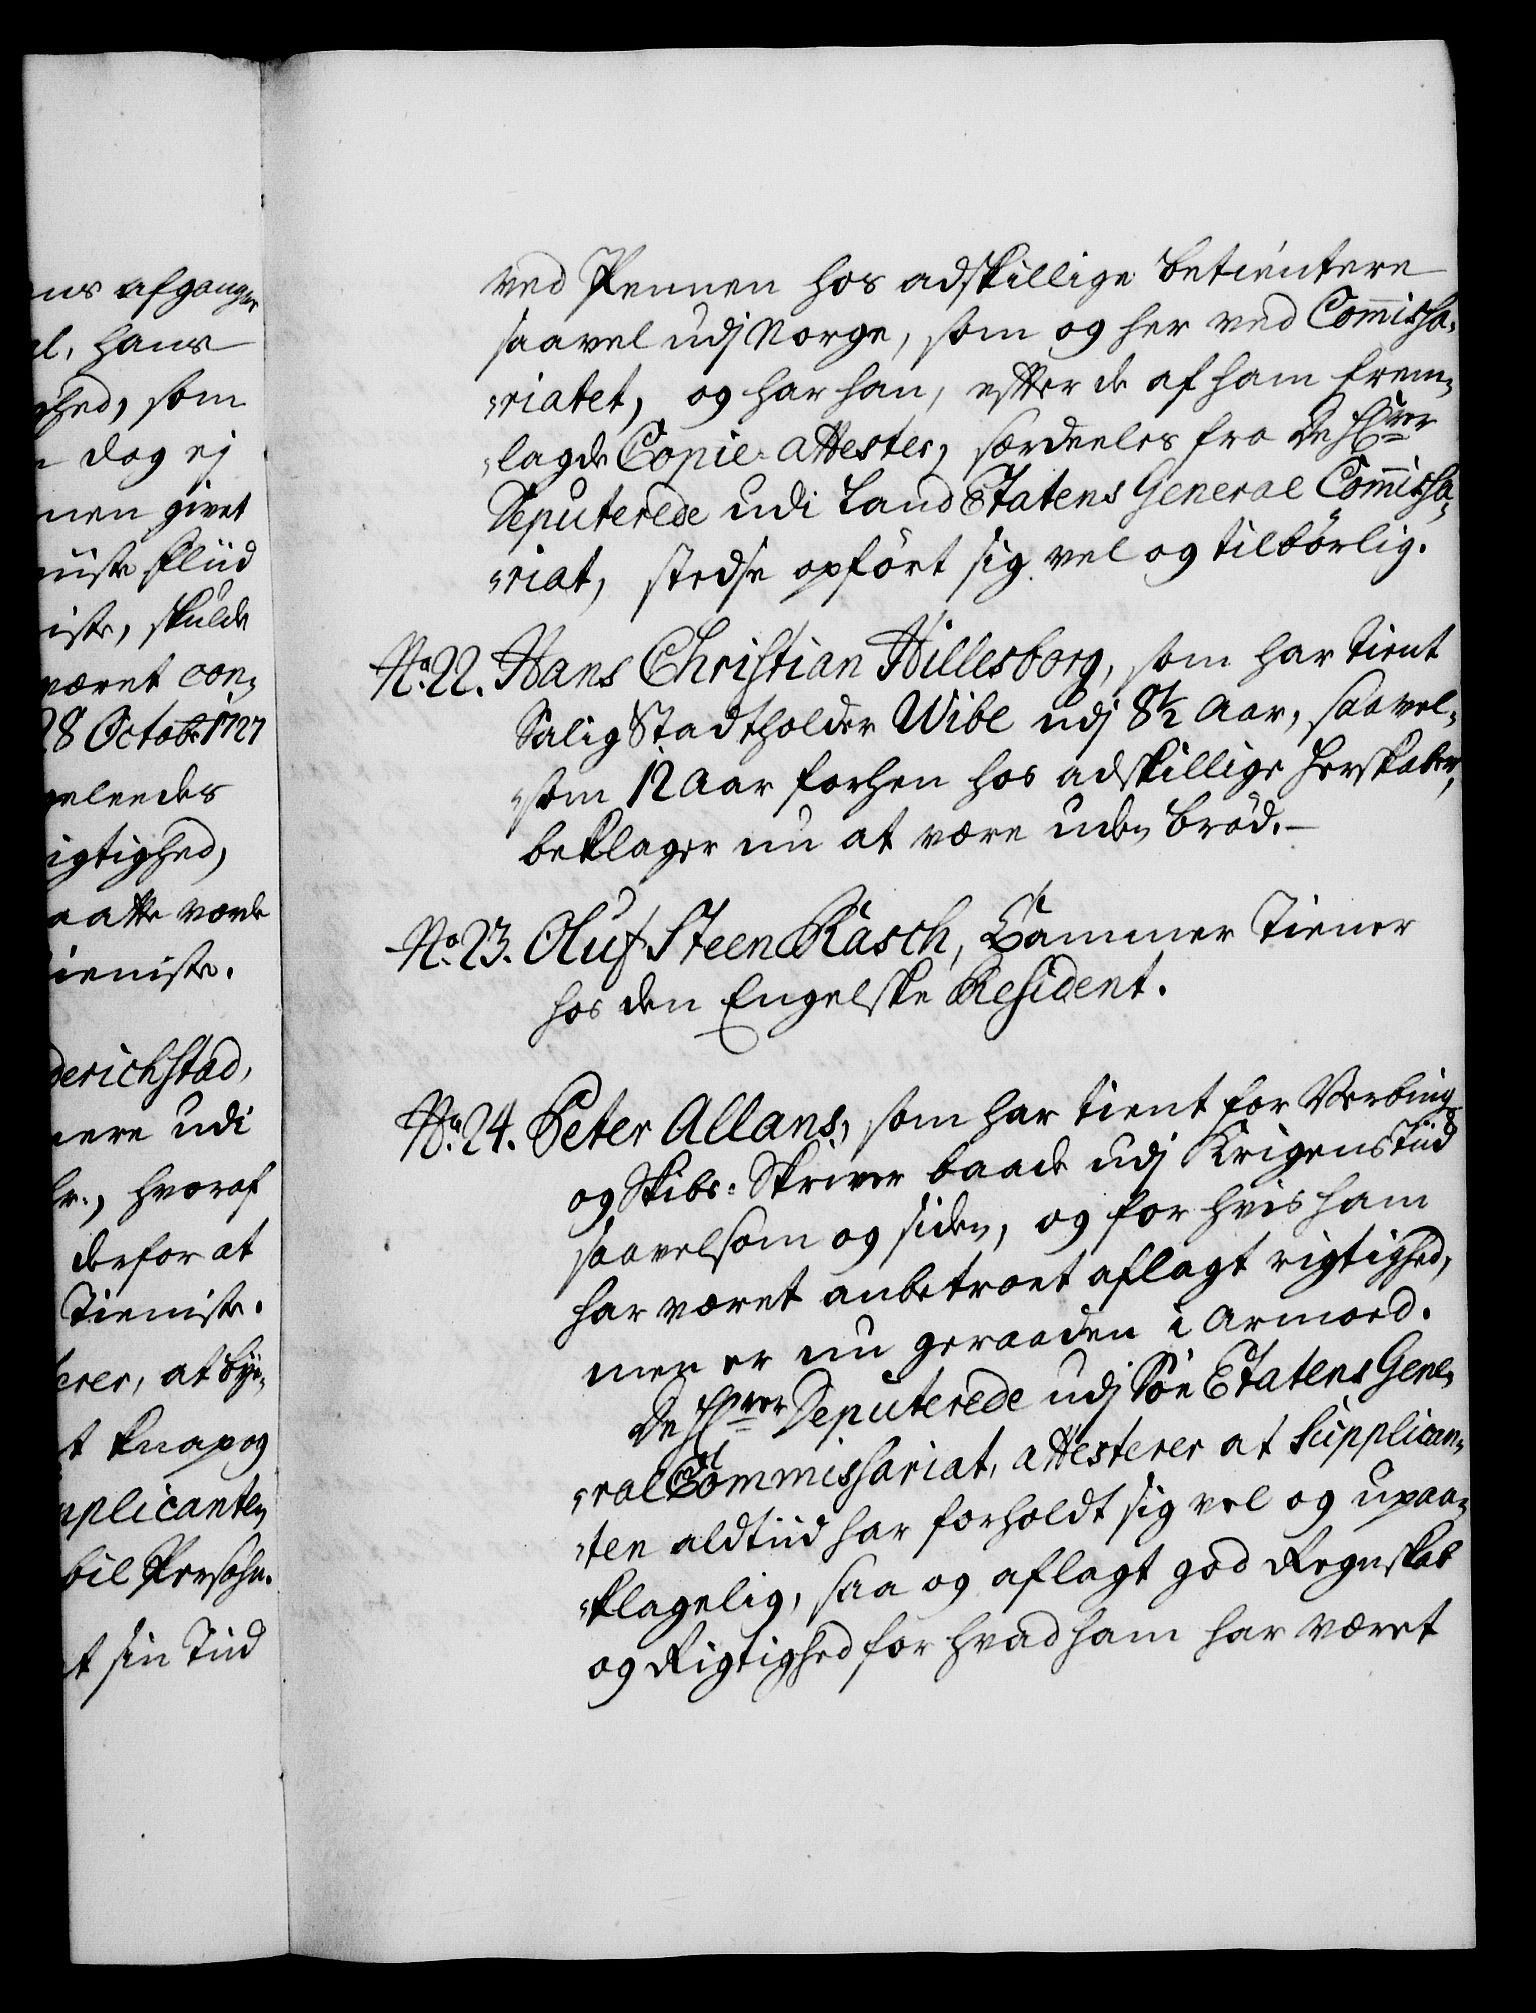 ns afganger
l, hans
hed, som
dog ej
nen givet
niste fliid
iste, skulde
været con-
28 Octobr 1727
geleedes
igtighed,
aatte vorde
ieniste.
derichstad,
nere udi
hr., hvoraf
derfor at
Tieniste.
erer, at
t knap og
plicanten
bil Persohn.
t sin Tiid
ved Pennen hos adskillige betientere
saavel udj Norge, som og her ved Com̅issa-
riatet, og har han, efter de af ham frem-
lagde Copie-attester, særdeeles fra de Hrer
Deputerede udi Land Etatens General Com̅issa-
riat, stedse opført sig vel og tilbørlig.
No. 22. Hans Christian Hillesborg, som har tient
Salig Stadtholder Wibe udj 8½ Aar, saavel-
som 12 Aar forhen hos adskillige herskaber,
beklager nu at være uden brød.-
No. 23. Oluf Steen Rasch, Cammer Tiener
hos den Engelske Resident.
No. 24. Peter Allans, som har tient for
og Skibs-Skriver baade udj Krigens Tiid
saavelsom og siden, og for hvis ham
har været anbetroet aflagt rigtighed,
men er nu geraaden i Armoed.
De Hrer Deputerede udj Søe Etatens Gene-
ral Commissariat, attesterer at Supplican-
ten aldtiid har forholdt sig vel og upaa-
klagelig, saa og aflagt god Regnskab
og Rigtighed for hvad ham har været